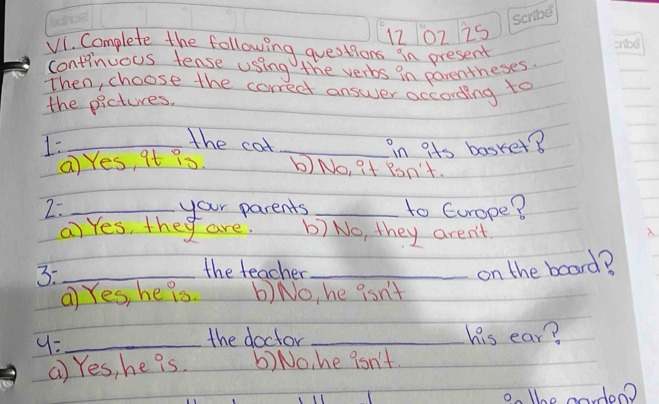 Scribe
12 02 25
VI. Complete the following questions in present
continuous tense using the verbs in parentheses.
Then, choose the correct answer according to
the pictures.
1:- ________ the cat ________ in its basket?
a) Yes, it is. b) No, it isn't.
2:- ________ your parents ________ to Europe?
a) Yes, they are. b) No, they aren't.
3:- ________ the teacher ________ on the board?
a) Yes, he is. b) No, he isn't
4:- ________ the doctor ________ his ear?
a) Yes, he is. b) No, he isn't.
in the garden?